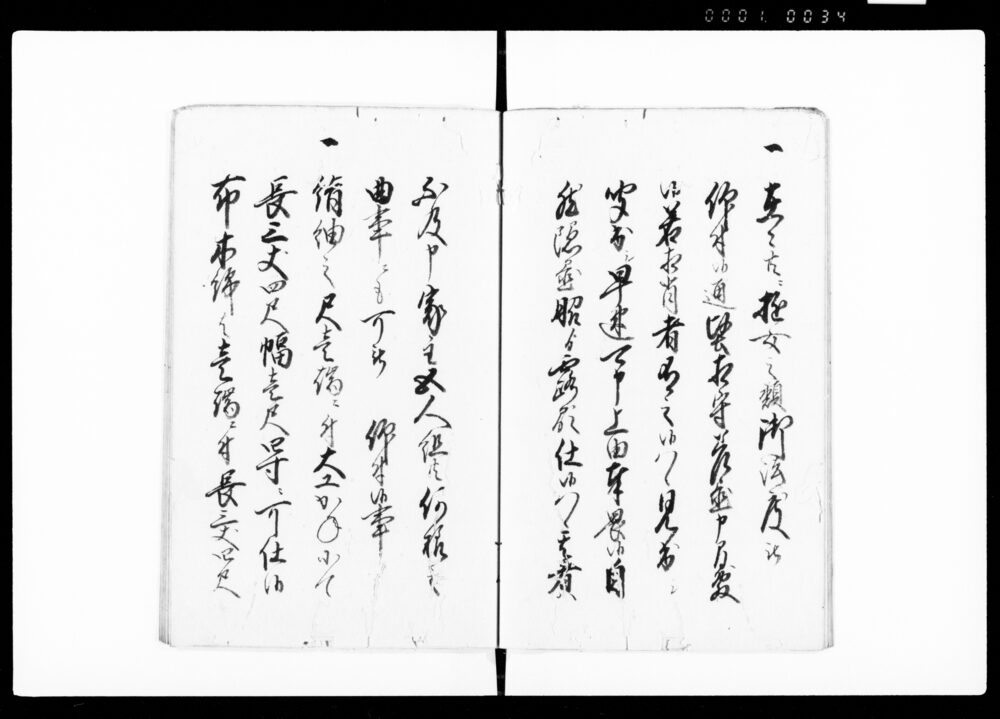 0001. 0034
一 在々 遊女之類御法度被
仰付候通堅相守 申候
若相背者有之候ハヽ見出シ
聞出シ早速可申上由奉畏候自
然隠置脇より露顕仕候ハヽ其者
不及申家主五人組共何様之
曲事ニも可被 仰付候事
一 絹紬之尺壱端ニ付大工かねにて
長三丈四尺幅壱尺四寸ニ可仕候
布木綿ハ壱端ニ付長三丈四尺